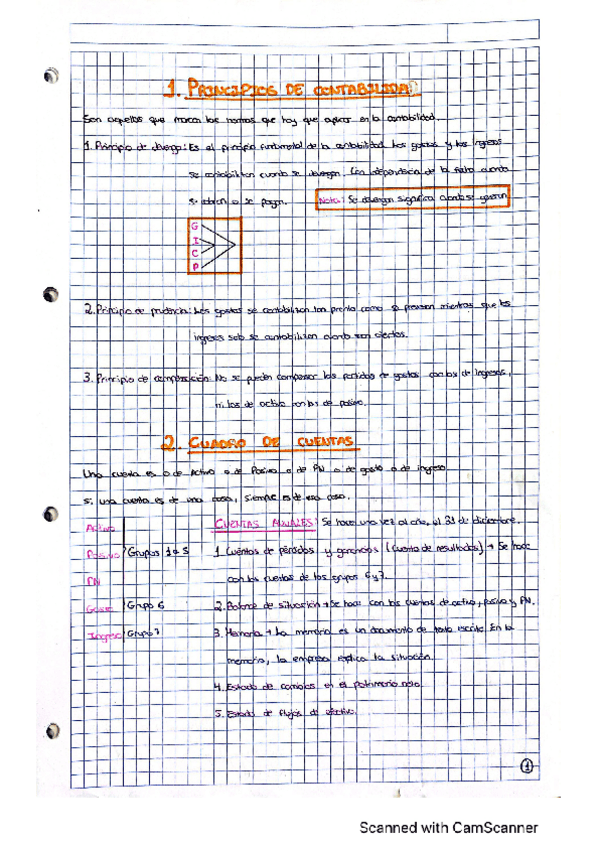 1. PRINCIPIOS DE CONTABILIDAD
Son aquellos que marcan las normas que hay que aplicar en la contabilidad.
1. Principio de devengo: Es el principio fundamental de la contabilidad. Los gastos y los ingresos
se contabilizan cuando se devengan. Con dependencia de la fecha cuando
se cobren o se pagan. Nota: Se devengan significa cuando se generan
G
I
C
P
2. Principio de prudencia: Los gastos se contabilizan tan pronto como se prevean mientras que los
ingresos solo se contabilizan cuando son ciertos.
3. Principio de compensación: No se pueden compensar las partidas de gastos con las de ingresos,
ni las de activo con las de pasivo.
2. CUADRO DE CUENTAS
Una cuenta es o de Activo o de Pasivo o de PN o de gasto o de ingreso
Si una cuenta es de una cosa, siempre es de esa cosa.
Activo
CUENTAS ANUALES: Se hace una vez al año, el 31 de diciembre.
Pasivo Grupos 1 a 5
1. Cuentas de pérdidas y ganancias (Cuenta de resultados) → Se hace
PN
con las cuentas de los grupos 6 y 7.
Gasto Grupo 6
2. Balance de situación → Se hace con las cuentas de activo, pasivo y PN.
Ingreso Grupo 7
3. Memoria → La memoria es un documento de texto escrito. En la
memoria, la empresa explica la situación.
4. Estado de cambios en el patrimonio neto
5. Estado de flujos de efectivo.
1
Scanned with CamScanner